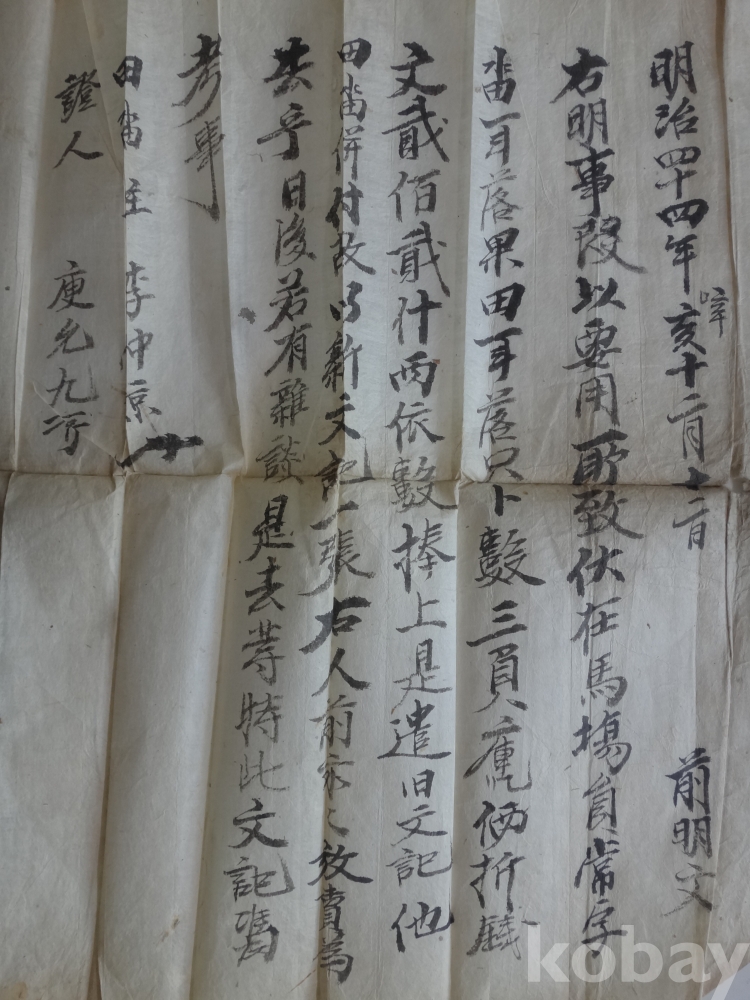 明治四十四年辛亥十二月十二日 前明文
右明事段以要用所致伏在馬場員常字
畓一斗落果田一斗落只卜數三負廤価折錢
文貳佰貳什両依數捧上是遣旧文記他
田畓併付故以新文記一張右人前永永放賣為
去乎日後若有雜談是去等持此文記憑
考事
田畓主 李仲京
證人 庾允九
kobay